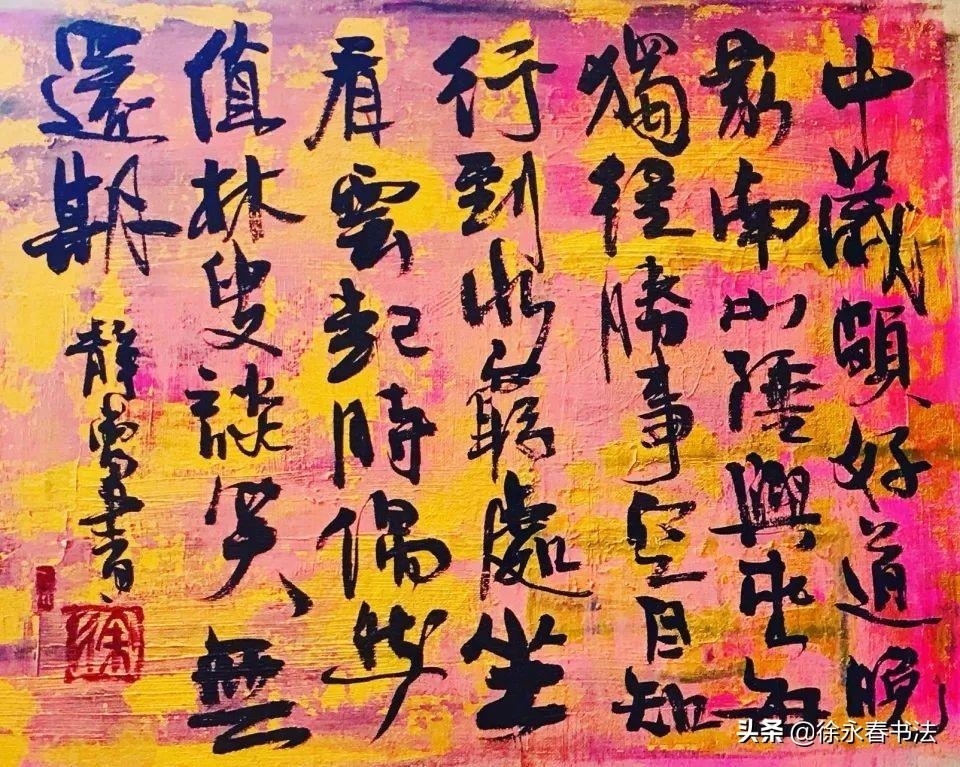 中歲頗好道晚
家南山陲興來每
獨往勝事空自知
行到水窮處坐
看雲起時偶然
值林叟談笑無
還期
靜書
徐
头条 @徐永春书法